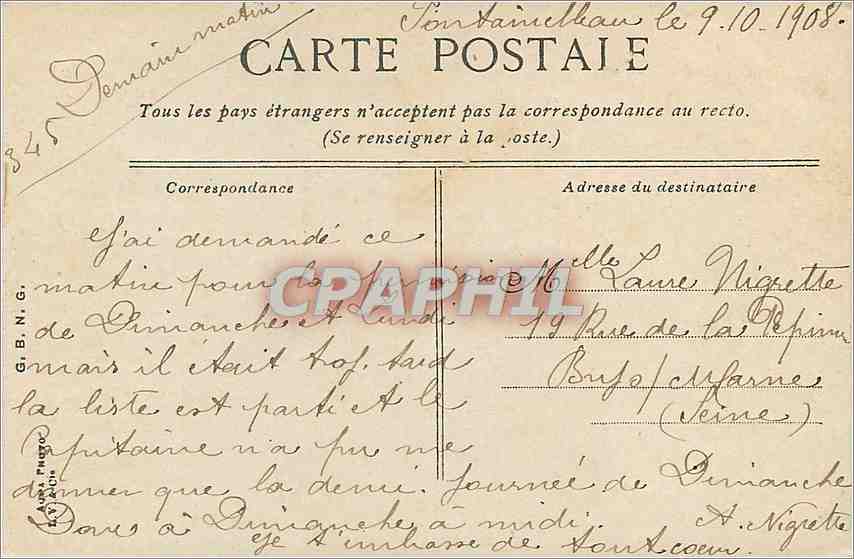 Fontainebleau le 9.10.1908.
345 Demain matin
CARTE POSTALE
Tous les pays étrangers n'acceptent pas la correspondance au recto.
(Se renseigner à la poste.)
Correspondance
J'ai demandé ce
matin pour la
de Dimanche et Lundi
mais il était trop tard
la liste est parti et le
Capitaine n'a pu me
donner que la demi-journée de Dimanche
Donc à Dimanche à midi. A. Nigrette
Je t'embrasse de tout coeur.
Adresse du destinataire
Melle Laure Nigrette
19 Rue de la
Bry s/ Marne
(Seine)
G. B. N. G.
AQUA PHOTO
L.V. & Cie
CPAPHIL